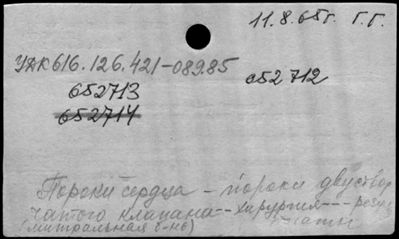 11.8.65г. Г.Г.
УДК 616.126.421-089.85
с52712
652713
652714
Пороки сердца - пороки двуствор
чатого клапана -- хирургия --
(митральная б-нь)